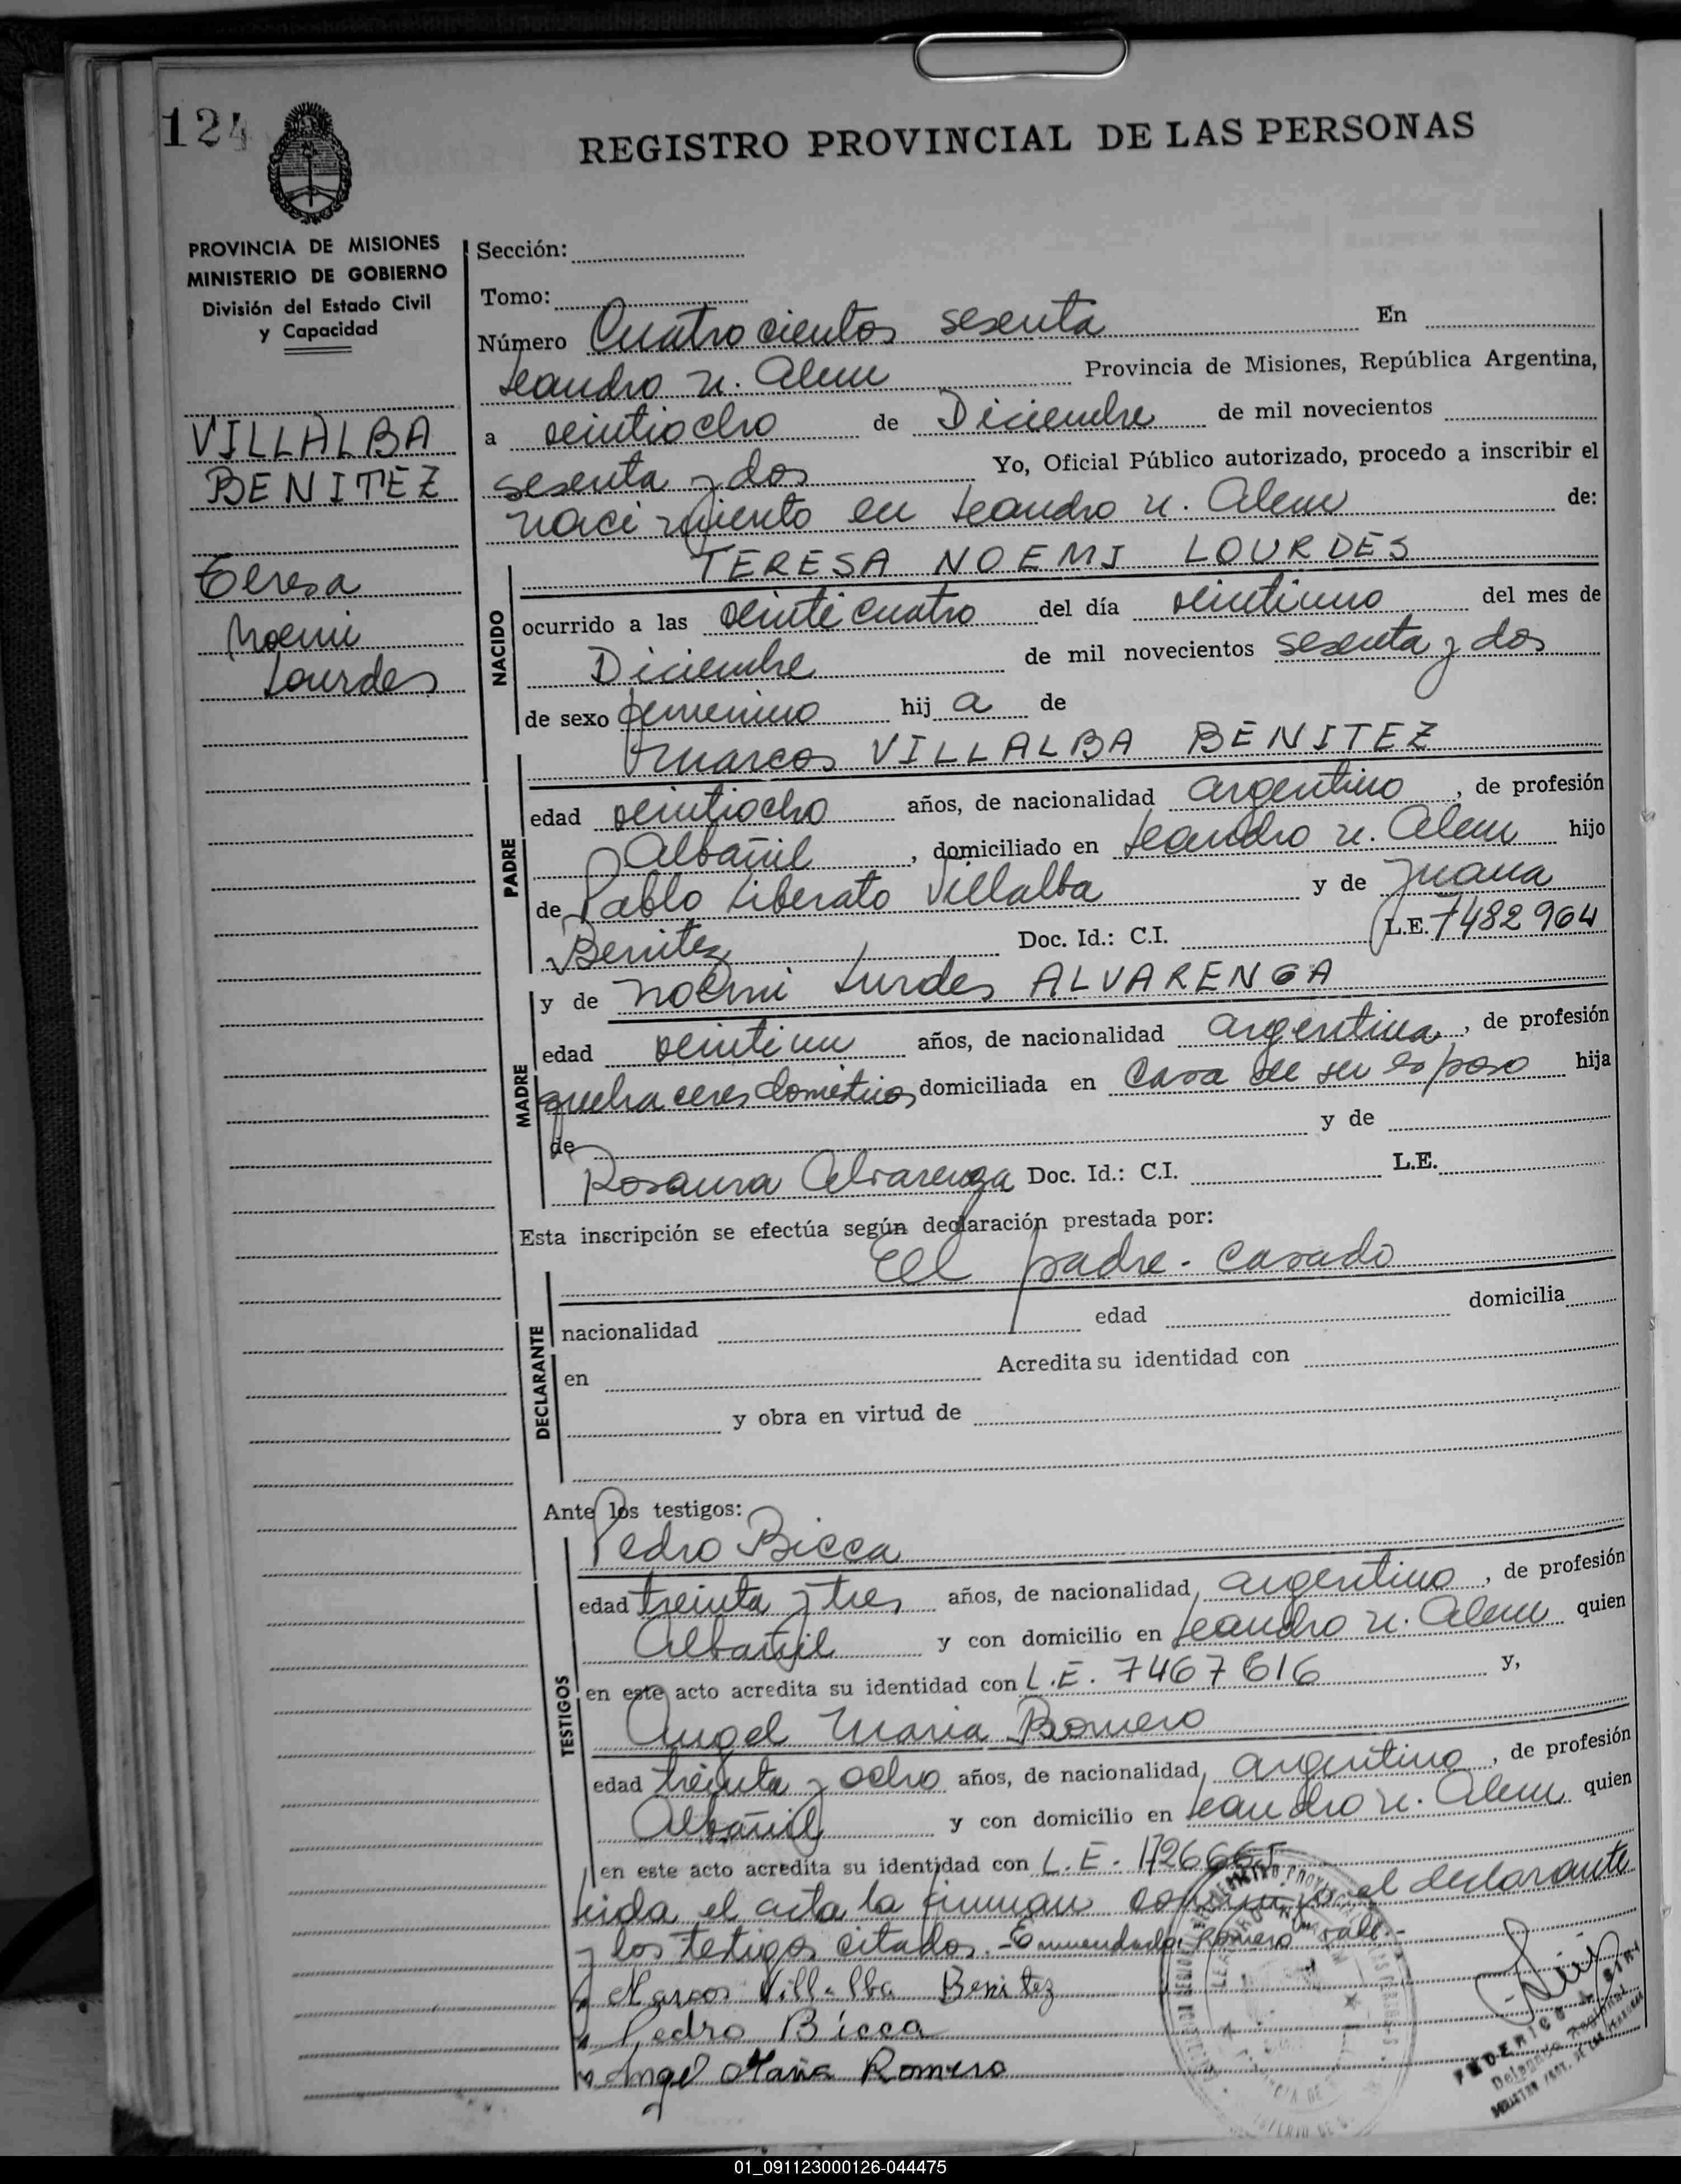 124
REGISTRO PROVINCIAL DE LAS PERSONAS
PROVINCIA DE MISIONES
MINISTERIO DE GOBIERNO
División del Estado Civil
y Capacidad
VILLALBA
BENITEZ
Teresa
Noemi
Lourdes
Sección:
Tomo:
Número Cuatrocientos sesenta En
Leandro N. Alem Provincia de Misiones, República Argentina,
a veintiocho de Diciembre de mil novecientos
sesenta y dos Yo, Oficial Público autorizado, procedo a inscribir el
nacimiento en Leandro N. Alem de:
NACIDO
TERESA NOEMI LOURDES
ocurrido a las veinticuatro del día veintiuno del mes de
Diciembre de mil novecientos sesenta y dos
de sexo femenino hij a de
PADRE
Marcos VILLALBA BENITEZ
edad veintiocho años, de nacionalidad argentino, de profesión
Albañil, domiciliado en Leandro N. Alem hijo
de Pablo Liberato Villalba y de Juana
Benitez Doc. Id.: C.I. L.E. 7482964
MADRE
y de Noemi Lurdes ALVARENGA
edad veintiun años, de nacionalidad argentina, de profesión
quehaceres domésticos domiciliada en casa de su esposo hija
de y de
Rosaura Alvarenga Doc. Id.: C.I. L.E.
Esta inscripción se efectúa según declaración prestada por:
DECLARANTE
El padre - casado
nacionalidad edad domicilia
en Acredita su identidad con
y obra en virtud de
Ante los testigos:
TESTIGOS
Pedro Bicca
edad treinta y tres años, de nacionalidad argentino, de profesión
Albañil y con domicilio en Leandro N. Alem quien
en este acto acredita su identidad con L.E. 7467616 y,
Angel Maria Romero
edad treinta y ocho años, de nacionalidad argentino, de profesión
Albañil y con domicilio en Leandro N. Alem quien
en este acto acredita su identidad con L.E.
Leida el acta la firman conmigo el declarante
y los testigos citados.- Enmendado: Romero vale.-
Marcos Villalba Benitez
Pedro Bicca
Angel Maria Romero
FEDERICO
01_091123000126-044475